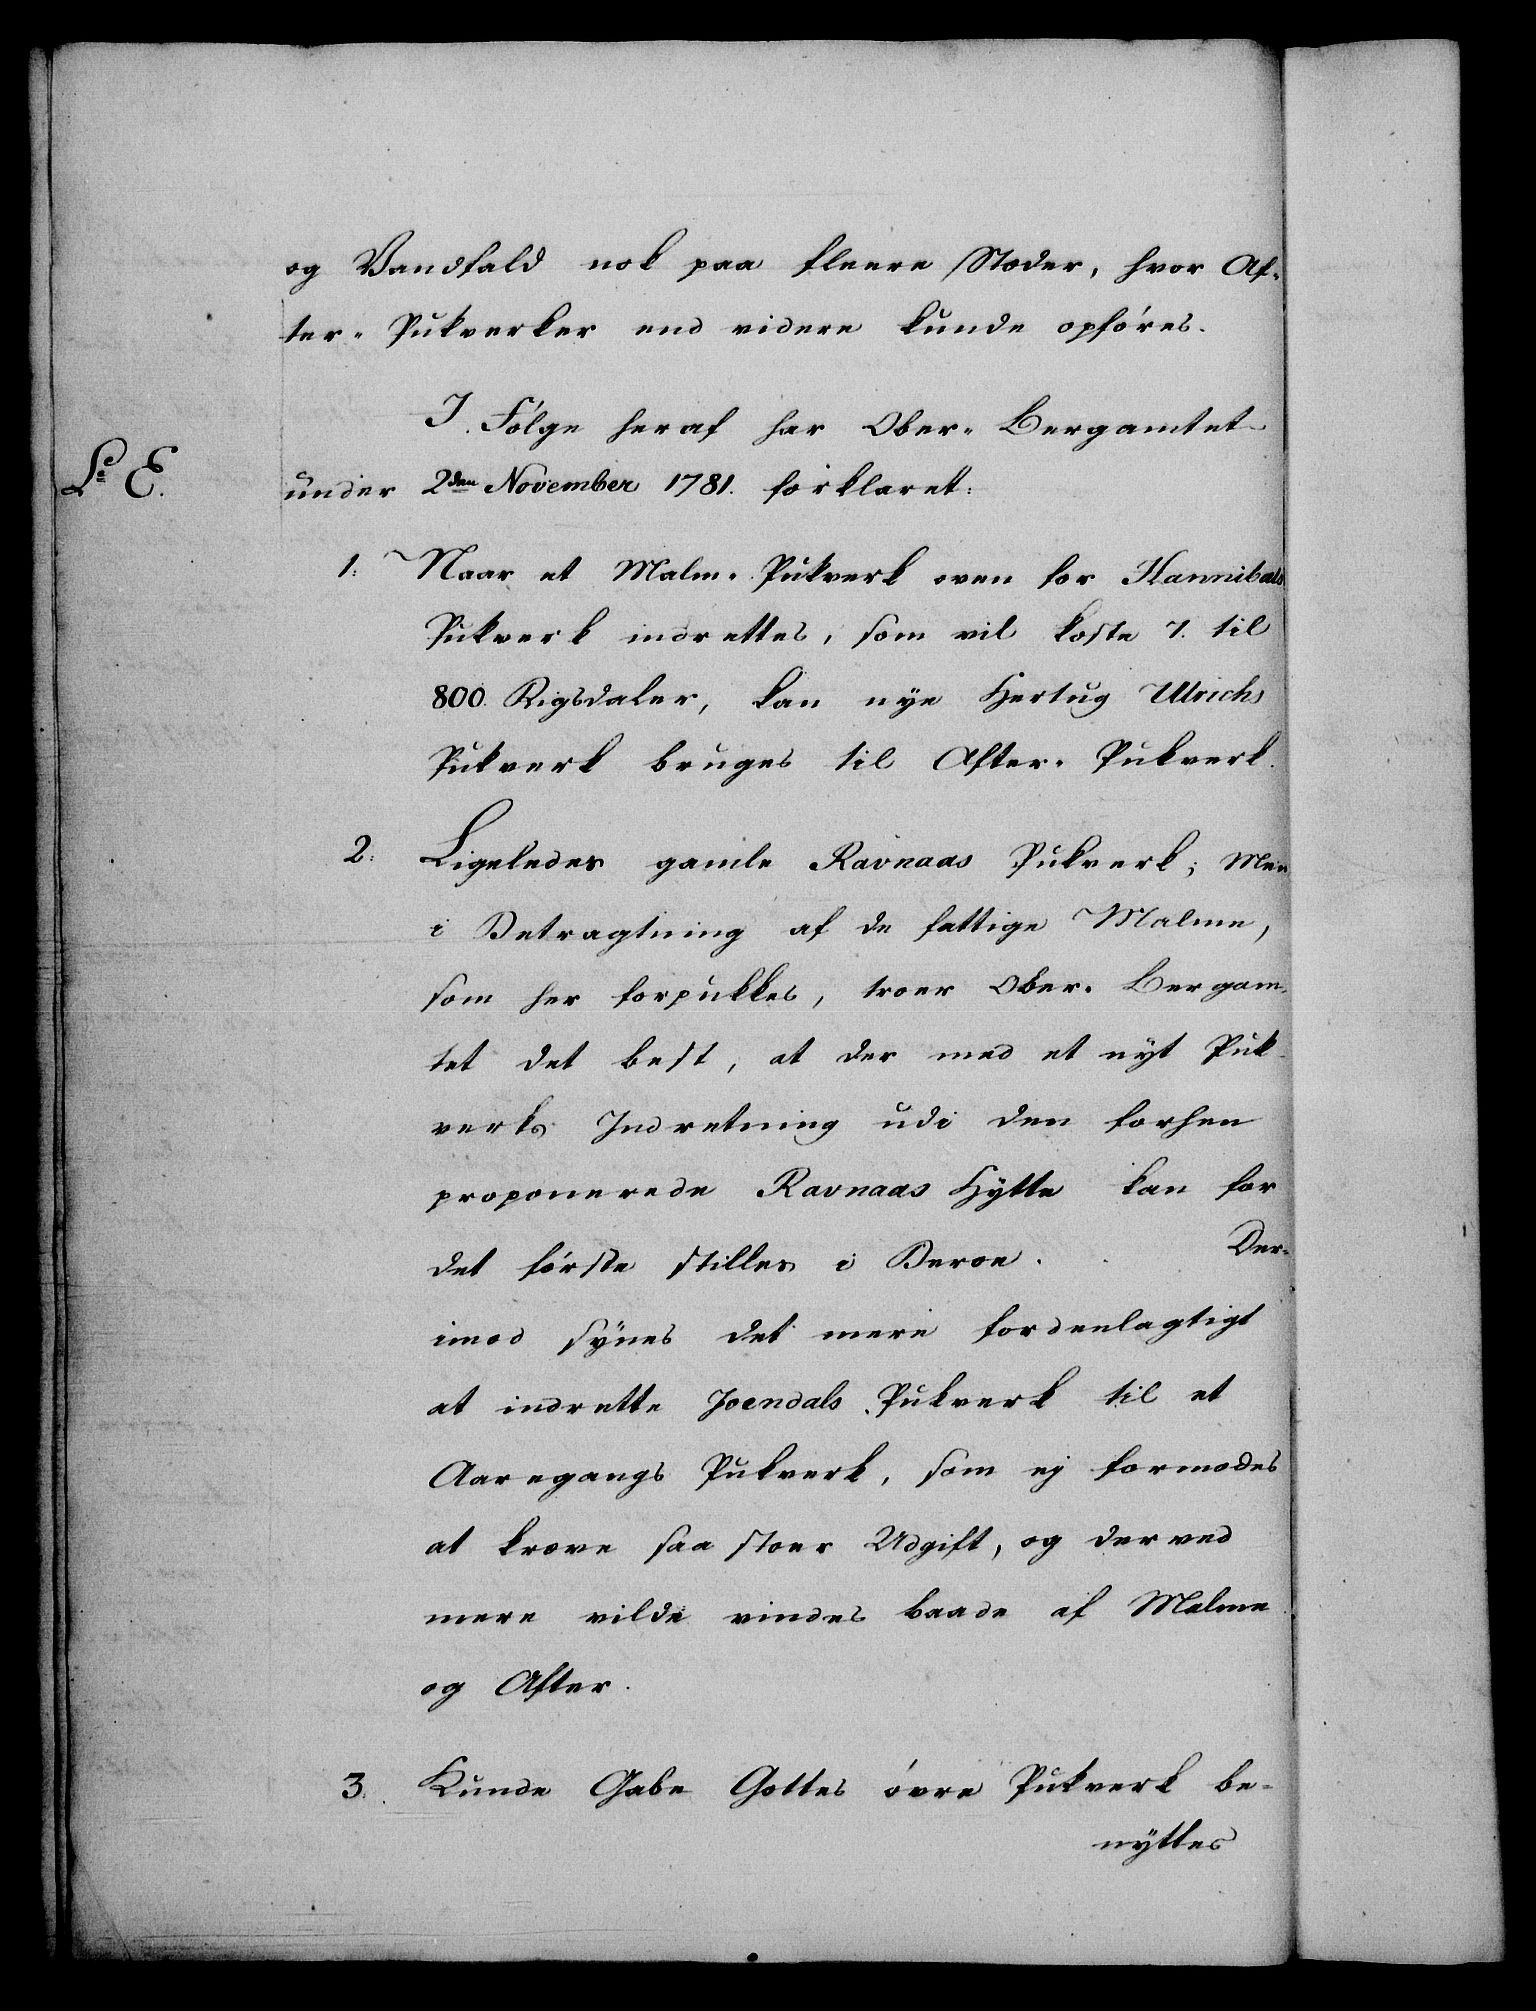 og Vandfald nok paa fleere Stæder, hvor Af-
ter-Pukverker end videre kunde opføres.
I Følge heraf har Ober-Bergamtet
Lr E.
under 2den November 1781. forklaret:
1. Naar et Malm-Pukverk oven for Hannibals
Pukverk indrettes, som vil koste 7. til
800. Rigsdaler, kan nye Hertug Ulrichs
Pukverk bruges til After-Pukverk.
2. Ligeledes gamle Ravnaas Pukverk; Men
i Betragtning af de fattige Malme,
som her forpukkes, troer Ober-Bergam-
tet det best, at der med et nyt Puk-
verks Indretning udi den forhen
proponerede Ravnaas Hytte kan for
det første stilles i Beroe. Der-
imod synes det mere fordeelagtigt
at indrette Joendals Pukverk til et
Aaregangs Pukverk, som ej formodes
at kræve saa stoer Udgift, og derved
mere vilde vindes baade af Malme
og After.
3. Kunde Gabe Gottes øvre Pukverk be-
nyttes